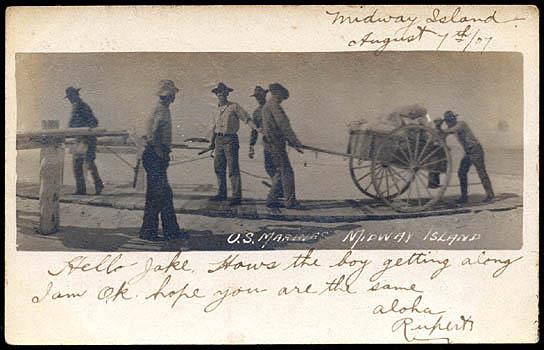 Midway Island
August 7th/07
U.S. MARINES MIDWAY ISLAND
Hello Jake. Hows the boy getting along
I am O.K. hope you are the same
aloha
Rupert